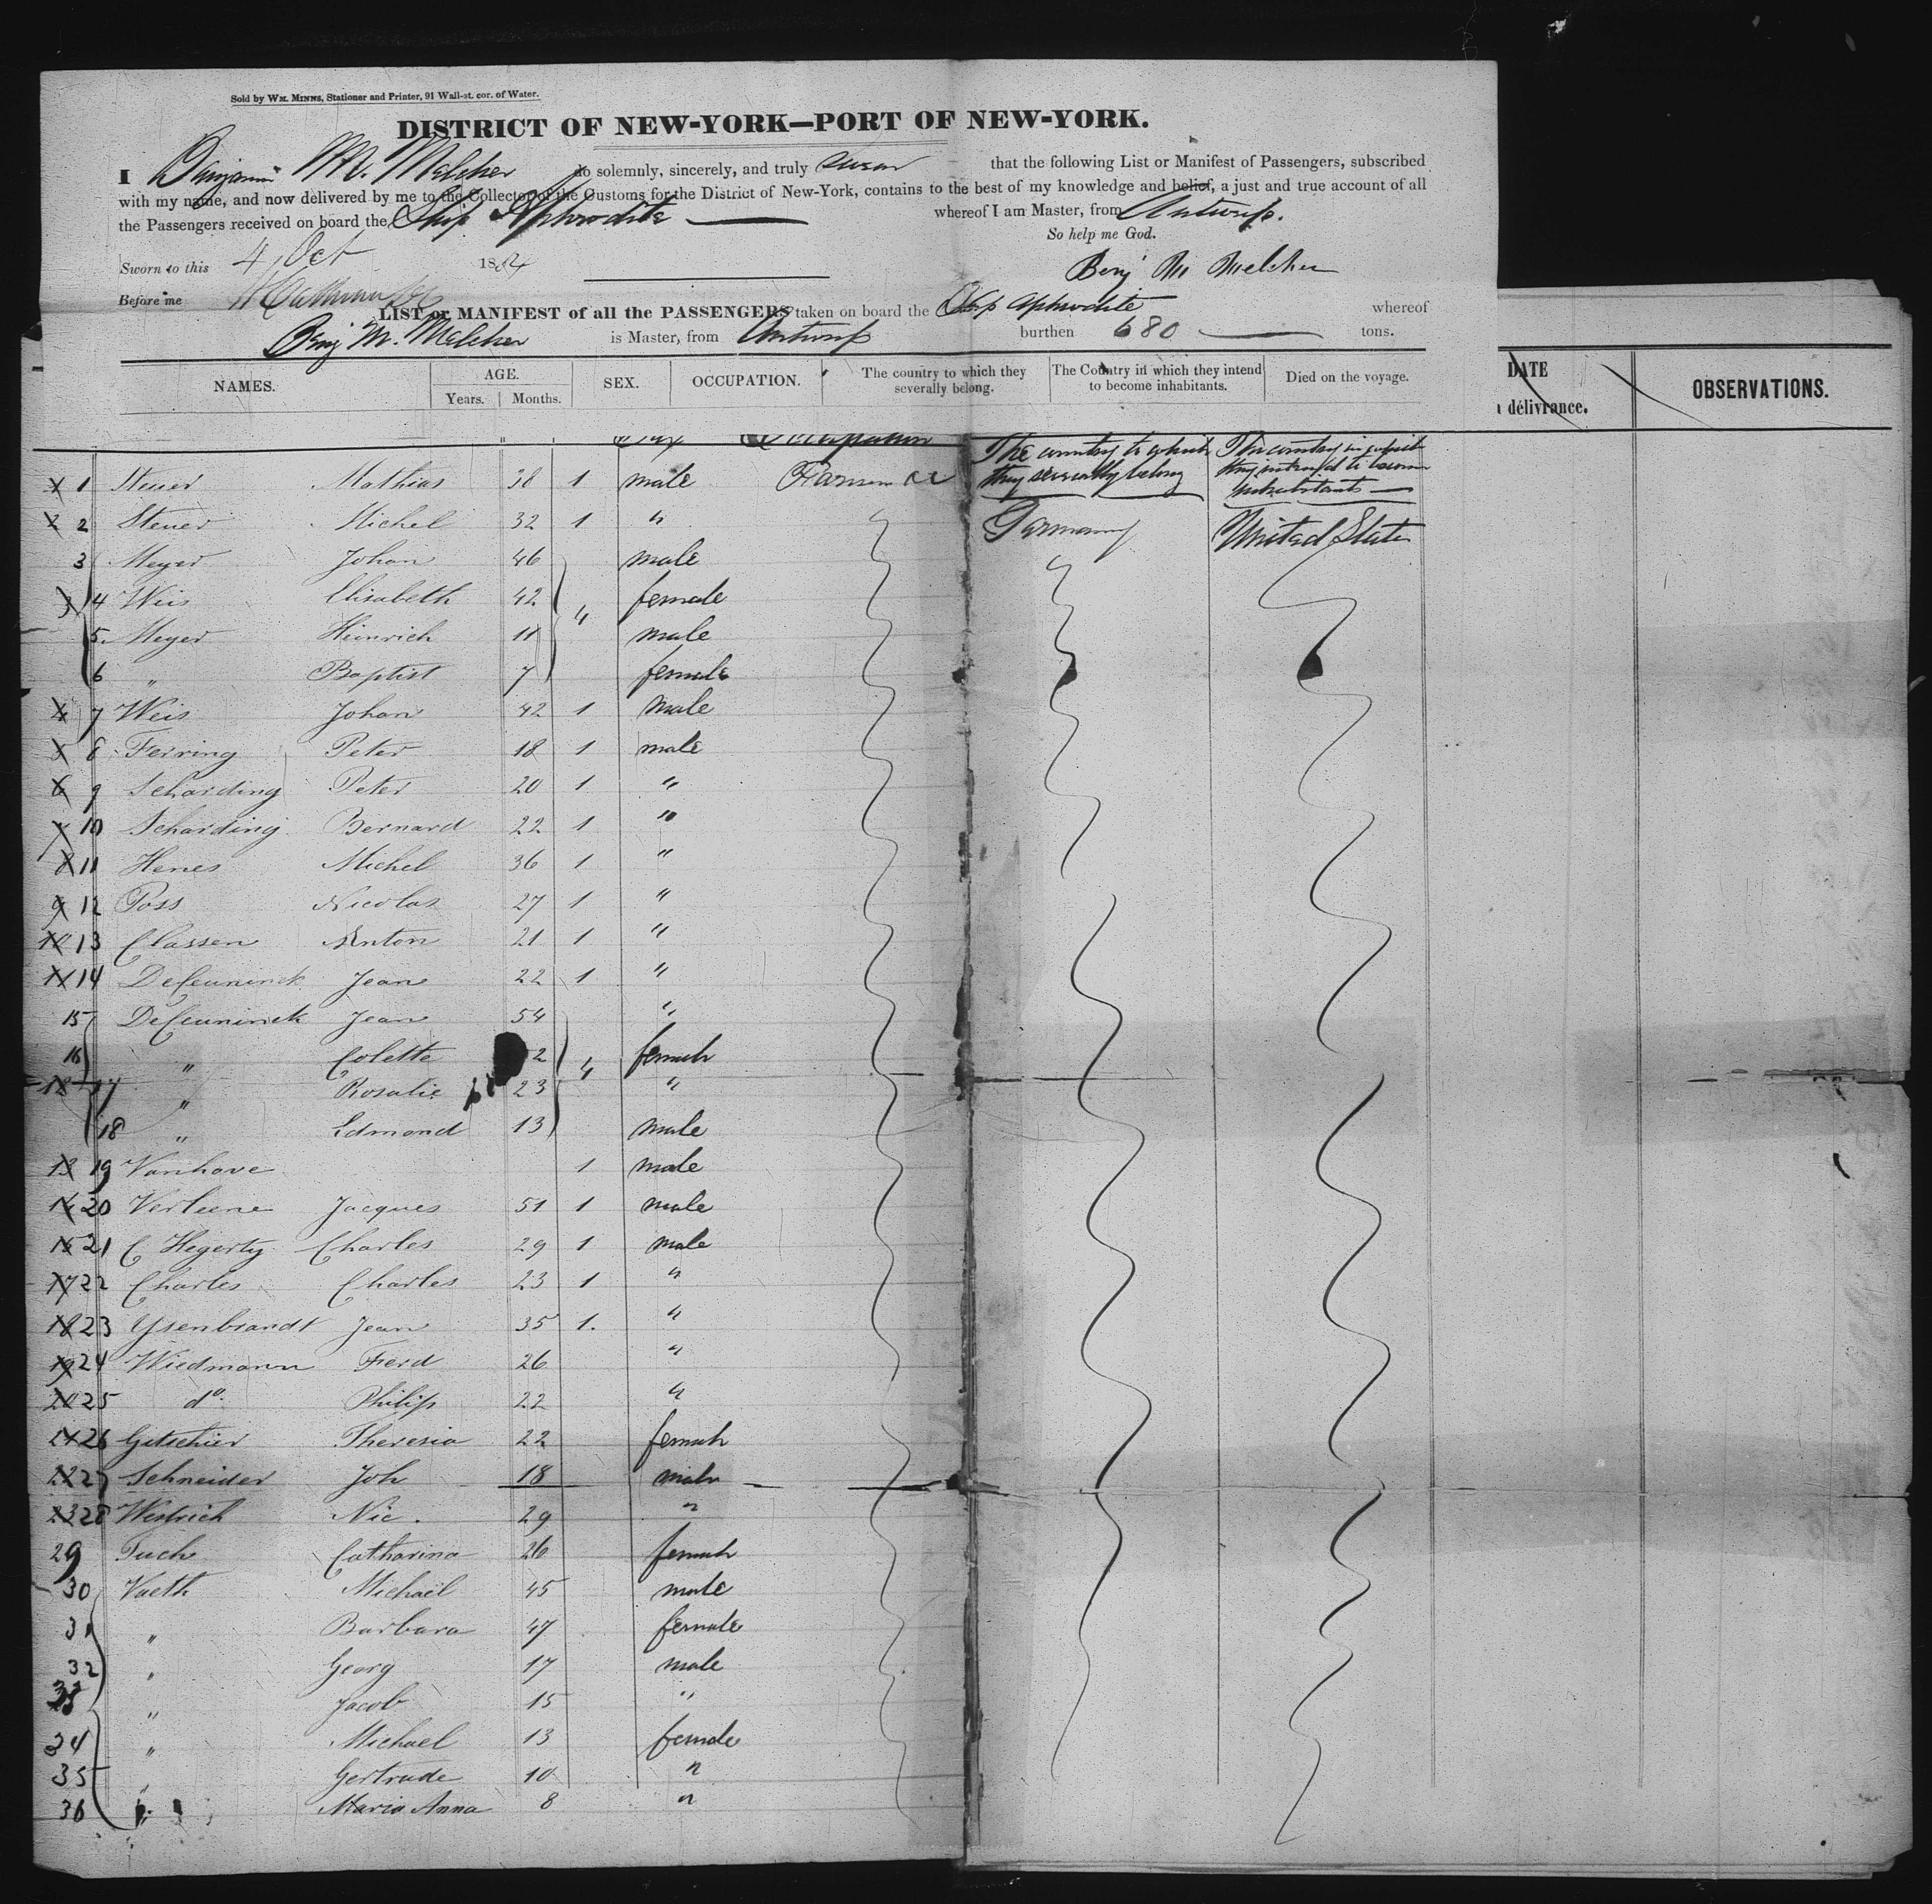 Sold by WM. MINNS, Stationer and Printer, 91 Wall-st. cor. of Water.
DISTRICT OF NEW-YORK—PORT OF NEW-YORK.
I Benjamin M. Melcher do solemnly, sincerely, and truly swear that the following List or Manifest of Passengers, subscribed
with my name, and now delivered by me to the Collector of the Customs for the District of New-York, contains to the best of my knowledge and belief, a just and true account of all
the Passengers received on board the Ship Aphrodite whereof I am Master, from Antwerp.
So help me God.
Sworn to this 4 Oct 1854
Benj M Melcher
Before me
LIST or MANIFEST of all the PASSENGERS taken on board the Ship Aphrodite whereof
Benj M. Melcher is Master, from Antwerp burthen 680 tons.
NAMES. AGE. Years. Months. SEX. OCCUPATION. The country to which they severally belong. The Country in which they intend to become inhabitants. Died on the voyage. DATE délivrance. OBSERVATIONS.
Sex Occupation The country to which they severally belong The country in which they intend to become inhabitants
1 Steuer Mathias 38 1 male Farmer
2 Steuer Michel 32 1 " Germany United States
3 Meyer Johan 46 male
4 Weis Elisabeth 42 4 female
5. Meyer Heinrich 11 male
6 " Baptist 7 female
7 Weis Johan 42 1 male
8 Ferring Peter 18 1 male
9 Scharding Peter 20 1 "
10 Scharding Bernard 22 1 "
11 Henes Michel 36 1 "
12 Poss Nicolas 27 1 "
13 Classen Anton 21 1 "
14 DeCeuninck Jean 22 1 "
15 DeCeuninck Jean 54 "
16 " Colette 2 4 female
17 " Rosalie 23 "
18 " Edmond 13 male
19 Vanhove 1 male
20 Verleene Jacques 51 1 male
21 C Hegerty Charles 29 1 male
22 Charles Charles 23 1 "
23 Ysenbrandt Jean 35 1. "
24 Wiedmann Ferd 26 "
25 do. Philip 22 "
26 Gitschier Theresia 22 female
27 Schneider Joh 18 male
28 Westrich Nic. 29 "
29 Tuch Catharina 26 female
30 Vaeth Michael 45 male
31 " Barbara 47 female
32 " Georg 17 male
33 " Jacob 15 "
34 " Michael 13 female
35 " Gertrude 10 "
36 " Maria Anna 8 "